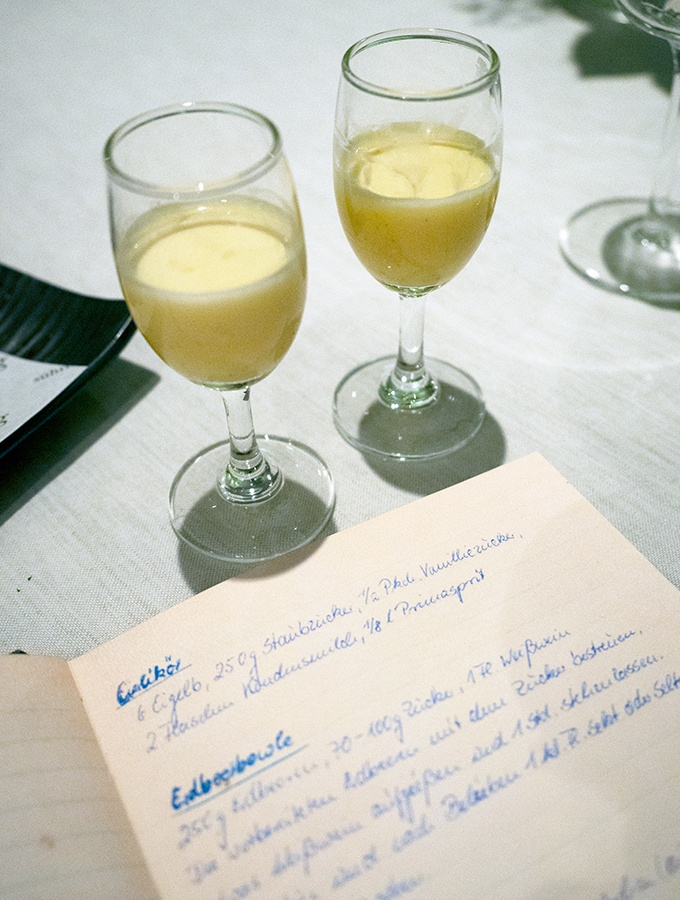 Eierlikör
6 Eigelb, 250g Staubzucker, 1/2 Pkch. Vanillezucker,
2 Flaschen Kondensmilch, 1/8 l Primasprit
Erdbeerbowle
250g Erdbeeren, 70-100g Zucker, 1 Fl. Weißwein
Die vorbereiteten Erdbeeren mit dem Zucker bestreuen,
etwas Weißwein aufgießen und 1 Std. stehenlassen.
und nach Belieben 1 Fl. Sekt oder